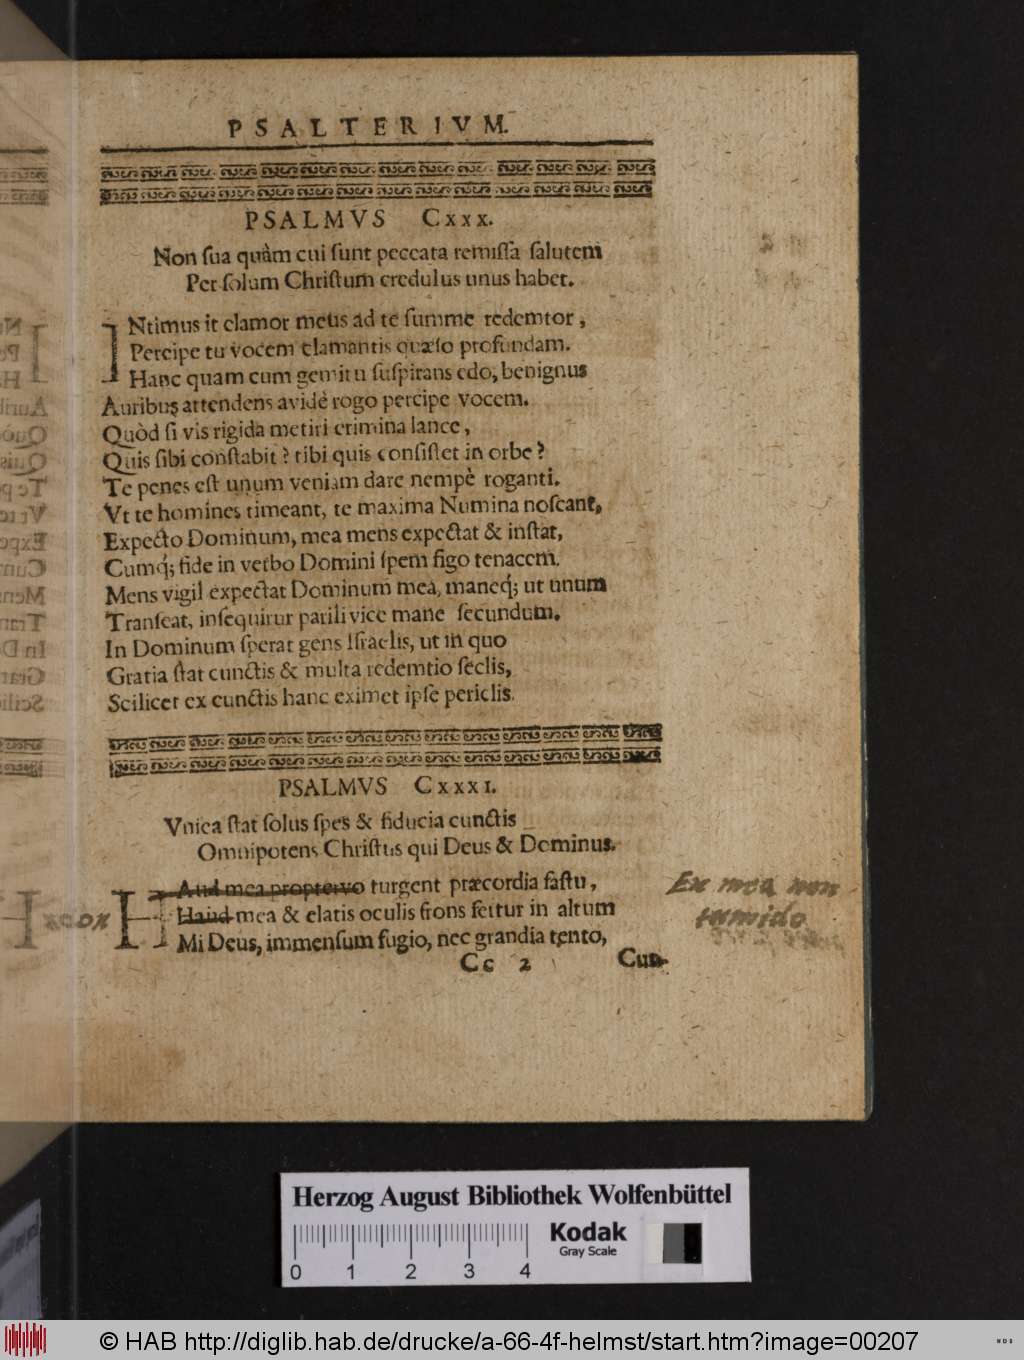 PSALTERIVM.
PSALMVS Cxxx.
Non ſua quàm cui ſunt peccata remiſſa ſalutem
Per ſolum Chriſtum credulus unus habet.
INtimus it clamor meus ad te ſumme redemtor,
Percipe tu vocem clamantis quæſo profundam.
Hanc quam cum gemitu ſuſpirans edo, benignus
Auribus attendens avidè rogo percipe vocem.
Quòd ſi vis rigida metiri crimina lance,
Quis ſibi conſtabit? tibi quis conſiſtet in orbe?
Te penes eſt unum veniam dare nempè roganti.
Vt te homines timeant, te maxima Numina noſcant,
Expecto Dominum, mea mens expectat & inſtat,
Cumq́; fide in verbo Domini ſpem figo tenacem.
Mens vigil expectat Dominum mea, maneq́; ut unum
Tranſeat, inſequitur parili vice mane ſecundum.
In Dominum ſperat gens Iſraelis, ut in quo
Gratia ſtat cunctis & multa redemtio ſeclis,
Scilicet ex cunctis hanc eximet ipſe periclis.
PSALMVS Cxxxi.
Vnica ſtat ſolus ſpes & fiducia cunctis
Omnipotens Chriſtus qui Deus & Dominus.
HAud mea proptervo turgent præcordia faſtu, Ex mea non
Haud mea & elatis oculis frons fertur in altum tumido
Mi Deus, immenſum fugio, nec grandia tento,
Cc 2 Cun-
Herzog August Bibliothek Wolfenbüttel
Kodak
Gray Scale
0 1 2 3 4
© HAB http://diglib.hab.de/drucke/a-66-4f-helmst/start.htm?image=00207